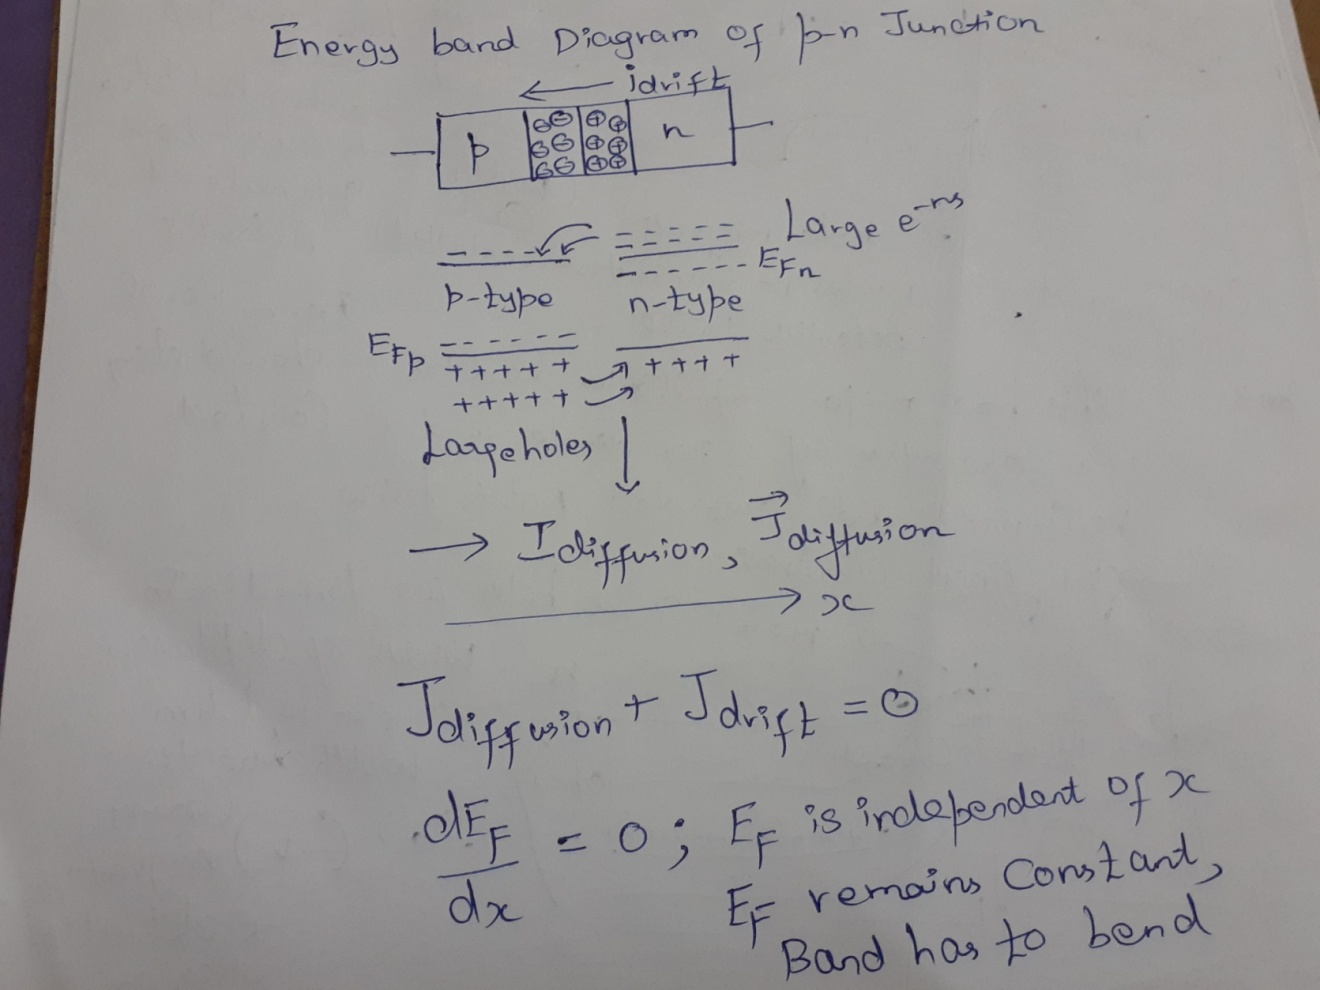 Energy band Diagram of p-n Junction
idrift
p
⊖⊖ ⊕⊕
⊖⊖ ⊕⊕
⊖⊖ ⊕⊕
n
Large e-ns
EFn
p-type n-type
EFp
+++++ ++++
+++++
Large holes
→ Idiffusion, Jdiffusion
x
Jdiffusion + Jdrift = 0
dEF/dx = 0; EF is independent of x
EF remains Constant,
Band has to bend